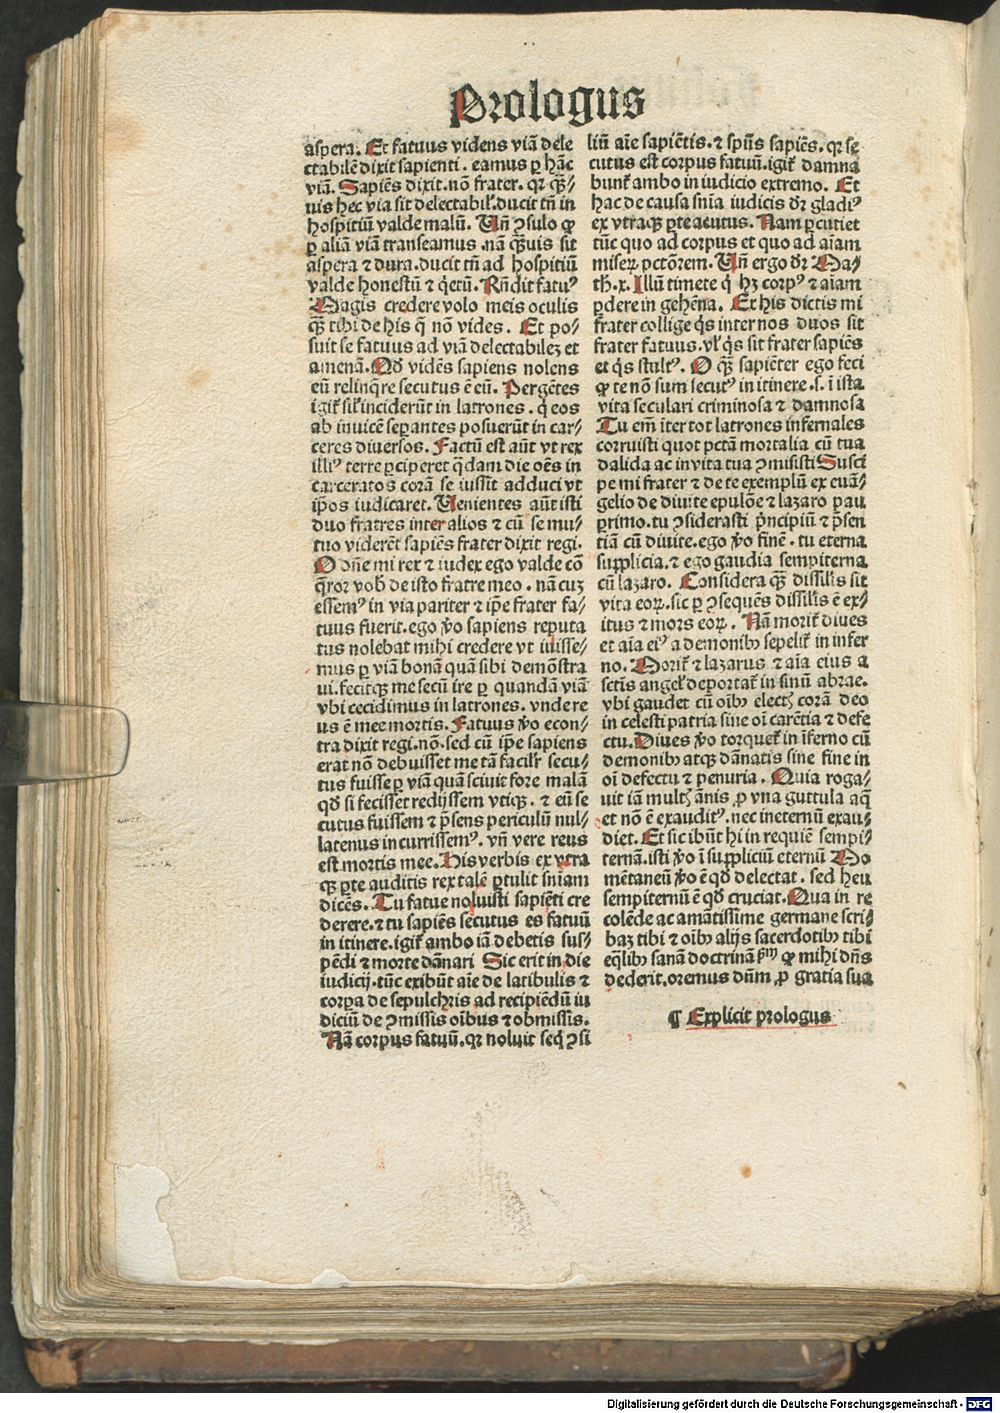 Prologus
aspera. Et fatuus videns viã dele
ctabilẽ dixit sapienti. eamus ꝑ hãc
viã. Sapiẽs dixit. nõ frater. qꝛ qẽ⸗
uis hec via sit delectabił. ducit tñ in
hospitiũ valde malũ. Uñ ꝯsulo ꝙ
ꝑ aliã viã transeamus. nã quis sit
aspera ⁊ dura. ducit tñ ad hospitiũ
valde honestũ ⁊ q̃etũ. Rñdit fatuꝰ
Magis credere volo meis oculis
q̃ꝫ tibi de his q̃ nõ vides. Et po⸗
suit se fatuus ad viã delectabileꝫ et
amenã. Qď vidẽs sapiens nolens
eũ relinq̃re secutus ẽ eũ. Pergẽtes
igiť sił inciderũt in latrones. q̇ eos
ab inuicẽ seꝑantes posuerũt in car⸗
ceres diuersos. Factũ est aũt vt rex
illiꝰ terre ꝑciperet q̃dam die oẽs in
carceratos corã se iussit adduci vt
ip̃os iudicaret. Uenientes aũt isti
duo fratres inter alios ⁊ cũ se mu⸗
tuo viderẽt sapiẽs frater dixit regi.
O dñe mi rex ⁊ iudex ego valde cõ
q̃ror vob̃ de isto fratre meo. nã cuꝫ
essemꝰ in via pariter ⁊ ip̃e frater fa⸗
tuus fuerit. ego ꝟo sapiens reputa
tus nolebat mihi credere vt iuisse⸗
mus ꝑ viã bonã quã sibi demõstra
ui. fecitqꝫ me secũ ire ꝑ quandã viã
vbi cecidimus in latrones. vnde re
us ẽ mee mortis. Fatuus ꝟo econ⸗
tra dixit regi. nõ. sed cũ ip̃e sapiens
erat nõ debuisset me tã facilr̃ secu⸗
tus fuisse ꝑ viã quã sciuit fore malã
qď si fecisset redijssem vtiqꝫ. ⁊ eũ se
cutus fuissem ⁊ p̃sens periculũ nul⸗
latenus incurrissemꝰ. vñ vere reus
est mortis mee. His verbis ex vtra
qꝫ ꝑte auditis rex talẽ ꝓtulit sniam
dicẽs. Tu fatue noluisti sapiẽti cre
derere. ⁊ tu sapiẽs secutus es fatuũ
in itinere. igiť ambo iã debetis sus⸗
pẽdi ⁊ morte dãnari Sic erit in die
iudicij. tũc exibũt aĩe de latibulis ⁊
corꝑa de sepulchris ad recipiẽdũ iu
diciũ de ꝯmissis oĩbus ⁊ obmissis.
Nã corpus fatuũ. qꝛ noluit seq̇ ꝯsi
liũ aĩe sapiẽtis. ⁊ spũs sapiẽs. qꝛ se
cutus est corpus fatuũ. igiť damna
bunť ambo in iudicio extremo. Et
hac de causa snĩa iudicis dꝛ gladiꝰ
ex vtraqꝫ ꝑte acutus. Nam ꝑcutiet
tũc quo ad corpus et quo ad aĩam
miserꝝ pctõrem. Uñ ergo dꝛ Ma⸗
th̃. x. Illũ timete q̇ hꝫ corpꝰ ⁊ aĩam
ꝑdere in gehẽna. Ex his dictis mi
frater collige q̇s inter nos duos sit
frater fatuus. vł q̇s sit frater sapiẽs
et q̇s stultꝰ. O q̃ꝫ sapiẽter ego feci
ꝙ te nõ sum secutꝰ in itinere. s. ĩ ista
vita seculari criminosa ⁊ damnosa
Tu em̃ ĩter tot latrones infernales
corruisti quot pctã mortalia cũ tua
dalida ac in vita tua ꝯmisisti Susci
pe mi frater ⁊ de te exemplũ ex euã⸗
gelio de diuite epulõe ⁊ lazaro pau
perrimo. tu ꝯsiderasti p̃ncipiũ ⁊ p̃sen
tiã cũ diuite. ego ꝟo finẽ. tu eterna
supplicia. ⁊ ego gaudia sempiterna
cũ lazaro. Considera q̃ꝫ dissil̃is sit
vita eoꝝ. sic ꝑ ꝯsequẽs dissil̃is ẽ ex⸗
itus ⁊ mors eoꝝ. Nã moriť diues
et aĩa eiꝰ a demonibꝫ sepeliť in infer
no. Moriť ⁊ lazarus ⁊ aĩa eius a
sctĩs angeł deportať in sinũ abrae.
vbi gaudet cũ oĩbꝫ electꝭ corã deo
in celesti patria sine oĩ carẽtia ⁊ defe
ctu. Diues ꝟo torqueť in ĩferno cũ
demonibꝫ atqꝫ dãnatis sine fine in
oĩ defectu ⁊ penuria. Quia roga⸗
uit iã multꝭ ãnis ꝓ vna guttula aq̃
et nõ ẽ exauditꝰ. nec ineternũ exau⸗
diet. Et sic ibũt hi in requiẽ sempi⸗
ternã. isti ꝟo ĩ suppliciũ eternũ Mo
mẽtaneũ ꝟo ẽ qď delectat. sed heu
sempiternũ ẽ qď cruciat. Qua in re
colẽde ac amãtissime germane scri⸗
baꝫ tibi ⁊ oĩbꝫ alijs sacerdotibꝫ tibi
eq̃libꝫ sanã doctrinã ꝙ mihi dñs
dederit. oremus dñm ꝓ gratia sua
¶ Explicit prologus
Digitalisierung gefördert durch die Deutsche Forschungsgemeinschaft - DFG